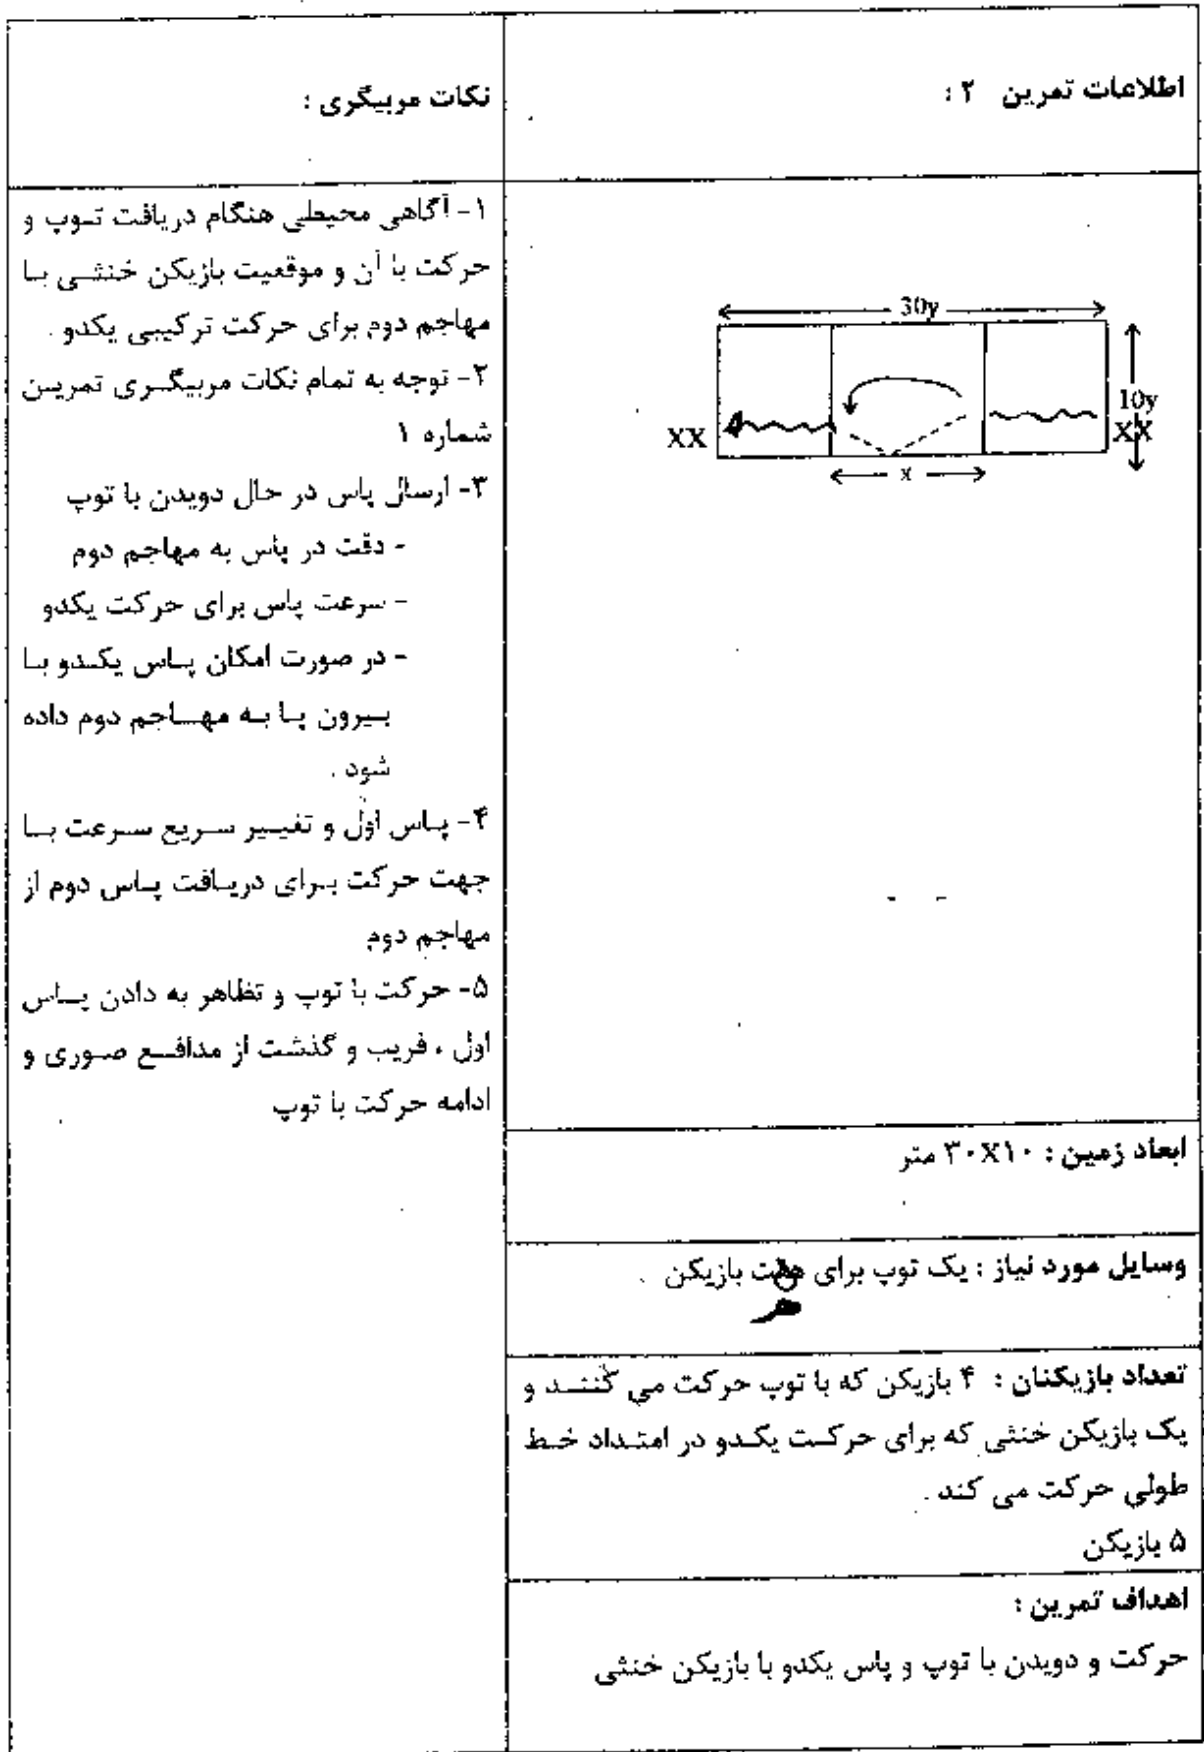 اطلاعات تمرین ۲ :
30y
10y
XX
XX
x
ابعاد زمین : ۳۰X۱۰ متر
وسایل مورد نیاز : یک توپ برای بازیکن .
تعداد بازیکنان : ۴ بازیکن که با توپ حرکت می کنند و
یک بازیکن خنثی که برای حرکت یکدو در امتداد خط
طولی حرکت می کند .
۵ بازیکن
اهداف تمرین :
حرکت و دویدن با توپ و پاس یکدو با بازیکن خنثی
نکات مربیگری :
۱- آگاهی محیطی هنگام دریافت توپ و
حرکت با آن و موقعیت بازیکن خنثی با
مهاجم دوم برای حرکت ترکیبی یکدو .
۲- توجه به تمام نکات مربیگری تمرین
شماره ۱
۳- ارسال پاس در حال دویدن با توپ
- دقت در پاس به مهاجم دوم
- سرعت پاس برای حرکت یکدو
- در صورت امکان پاس یکدو با
بیرون پا به مهاجم دوم داده
شود .
۴- پاس اول و تغییر سریع سرعت با
جهت حرکت برای دریافت پاس دوم از
مهاجم دوم
۵- حرکت با توپ و تظاهر به دادن پاس
اول ، فریب و گذشت از مدافع صوری و
ادامه حرکت با توپ